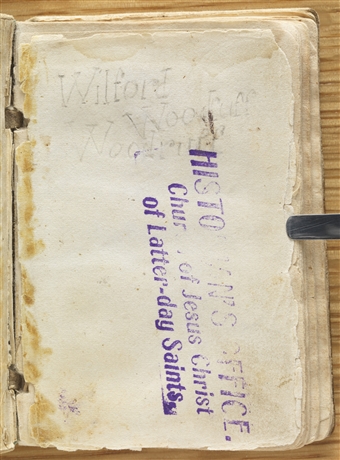 Wilford
Woodruff
Woodruff
HISTO   N'S OFFICE.
Chur   of Jesus Christ
of Latter-day Saints.